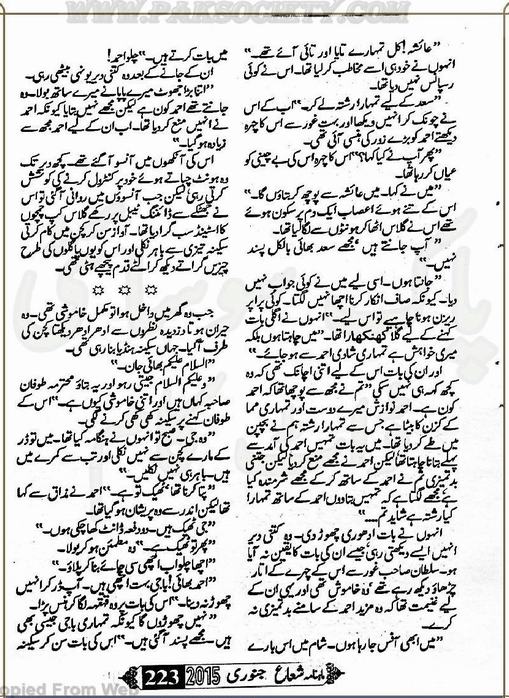 WWW.PAKSOCIETY.COM
"عائشہ! کل تمہارے تایا اور تائی آئے تھے۔"
انہوں نے خود ہی اسے مخاطب کر لیا تھا۔ اس نے کوئی
رسپانس نہیں دیا تھا۔
"سعد کے لیے تمہارا رشتہ لے کر۔" اب کے اس
نے چونک کر انہیں دیکھا اور بہت غور سے اس کا چہرہ
دیکھتے احمد کو بڑے زور کی ہنسی آئی تھی۔
"پھر آپ نے کیا کہا؟" اس کا چہرہ اس کی بے چینی کو
عیاں کر رہا تھا۔
"میں نے کہا۔ میں عائشہ سے پوچھ کر بتاؤں گا۔"
اس کے تنے ہوئے اعصاب ایک دم پر سکون ہوئے
تھے اس نے گلاس اٹھا کر ہونٹوں سے لگا لیا تھا۔
"آپ جانتے ہیں، مجھے سعد بھائی بالکل پسند
نہیں۔"
"جانتا ہوں۔ اسی لیے میں نے کوئی جواب نہیں
دیا۔ کیونکہ صاف انکار کرنا اچھا نہیں لگتا۔ کوئی پراپر
ریزن ہونا چاہیے تو اس لیے۔" انہوں نے اگلی بات
کہنے کے لیے گلا کھنکھارا تھا۔ "میں چاہتا ہوں بلکہ
میری خواہش ہے تمہاری شادی احمد سے ہو جائے۔"
اور ان کی بات اس کے لیے اتنی اچانک تھی کہ وہ
کچھ کہہ ہی نہیں سکی "تم نے مجھ سے پوچھا تھا کہ احمد
کون ہے۔ احمد نوازش میرے دوست اور تمہاری مما
کے کزن کا بیٹا ہے جس سے تمہارا رشتہ ہم نے بچپن
میں طے کر دیا تھا۔ میں یہ بات تمہیں احمد کی آمد سے
پہلے بتانا چاہتا تھا لیکن احمد نے مجھے منع کر دیا لیکن جتنی
بدتمیزی تم نے احمد کے ساتھ کر کے مجھے شرمندہ کیا
ہے مجھے لگتا ہے کہ تمہیں بتادوں احمد کے ساتھ تمہارا
کیا رشتہ ہے شاید تم۔۔۔"
انہوں نے بات ادھوری چھوڑ دی۔ وہ کتنی دیر
انہیں ایسے دیکھتی رہی جیسے ان کی بات کا یقین نہ آیا
ہو۔ سلطان صاحب غور سے اس کے چہرے کے اتار
چڑھاؤ دیکھ رہے تھے۔ وہ خاموش تھی اور یہی ان کے
لیے غنیمت تھا کہ وہ مزید احمد کے سامنے بدتمیزی نہ
کرے۔
"میں ابھی آفس جا رہا ہوں۔ شام میں اس بارے
میں بات کرتے ہیں۔" چلو احمد!
ان کے جانے کے بعد وہ کتنی دیر یونہی بیٹھی رہی۔
"اتنا بڑا جھوٹ میرے پاپا نے میرے ساتھ بولا۔ وہ
جانتے تھے احمد کون ہے لیکن مجھے نہیں بتایا کیونکہ احمد
نے انہیں منع کر دیا تھا۔ اب ان کے لیے احمد مجھ سے
زیادہ ہو گیا۔"
اس کی آنکھوں میں آنسو آ گئے تھے۔ کچھ دیر تک
وہ ہونٹ چباتے ہوئے خود پر کنٹرول کرنے کی کوشش
کرتی رہی لیکن جب آنسوؤں میں روانی آ گئی تو اس
نے جھٹکے سے ڈائننگ ٹیبل پر رکھے گلاس کپ چمچوں
کا اسٹینڈ سب گرا دیا تھا۔ آواز سن کر کچن میں کام کرتی
سکینہ تیزی سے باہر نکلی اور اس کو یوں پاگلوں کی طرح
چیزیں گراتے دیکھ کر الٹے قدم پیچھے ہٹی تھی۔
☼ ☼ ☼
جب وہ گھر میں داخل ہوا تو مکمل خاموشی تھی۔ وہ
حیران ہوتا دزدیدہ نظروں سے ادھر ادھر دیکھتا کچن کی
طرف آ گیا۔ جہاں سکینہ ہنڈیا بنا رہی تھی۔
"السلام علیکم بھائی جان۔"
"وعلیکم السلام جیتی رہو اور یہ بتاؤ محترمہ طوفان
صاحبہ کہاں ہیں اور اتنی خاموشی کیوں ہے۔" اس کے
طوفان کہنے پر سکینہ کھی کھی کرنے لگی۔
"وہ جی۔ صبح تو انہوں نے ہنگامہ کیا تھا۔ میں تو ڈر
کے مارے کچن سے نہیں نکلی اور تب سے کمرے میں
ہیں۔ باہر ہی نہیں نکلیں۔"
"پتا کرنا تھا، ٹھیک تو ہے۔" احمد نے مذاق سے کہا
تھا لیکن اندر سے وہ پریشان ہو گیا تھا۔
"جی ٹھیک ہیں۔ دو دفعہ ڈانٹ کھا چکی ہوں۔"
"پھر تو ٹھیک ہے۔" وہ مطمئن ہو کر بولا۔
"اچھا چلو اب اچھی سی چائے بنا کر پلاؤ۔"
"احمد بھائی! باجی بہت اچھی ہیں۔ آپ ڈر کر انہیں
چھوڑ نہ دینا۔" اس کی بات پر وہ قہقہہ لگا کر ہنس پڑا۔
"نہیں چھوڑوں گا کیونکہ تمہاری باجی جیسی بھی
ہیں۔ مجھے پسند آ گئی ہیں۔" اس کی بات سن کر سکینہ
ماہنامہ شعاع جنوری 2015 223
opied From Web